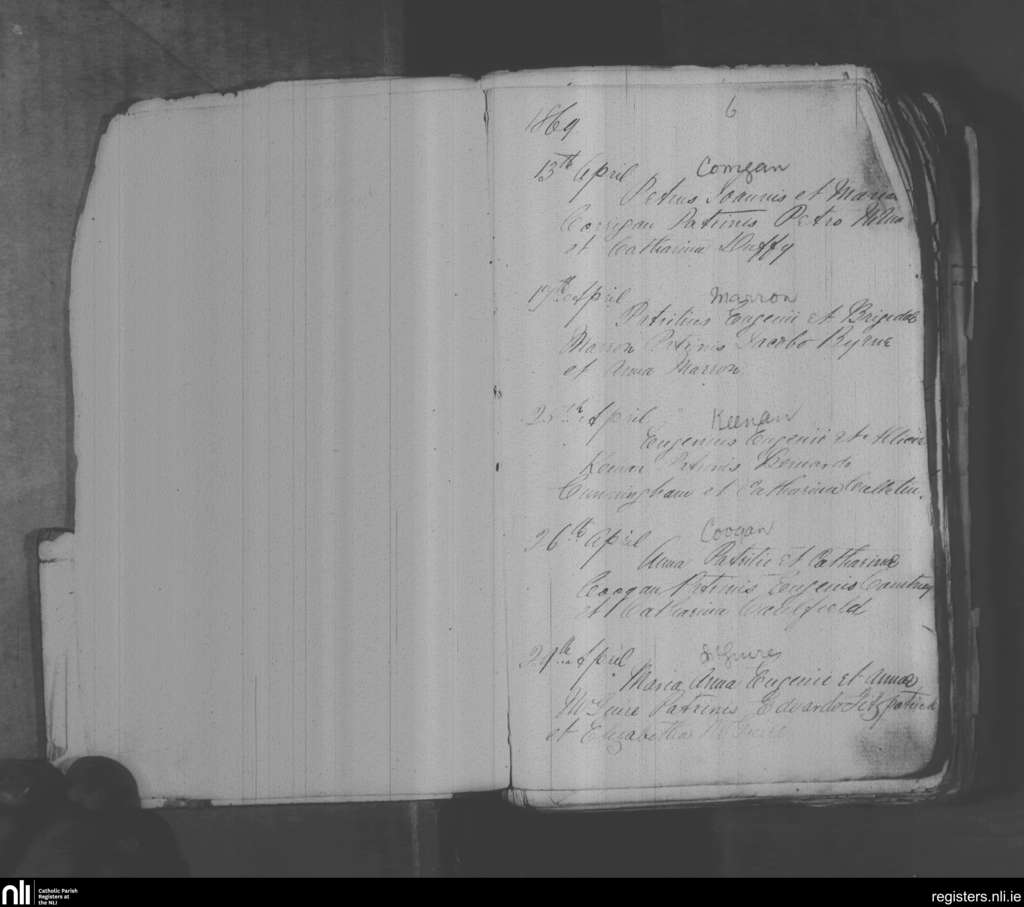 6
1869
13th April Corrigan
Petrus Joannis et Maria
Corrigan Patrinis Petro
et Catharina Duffy
17th April Marron
Patritius Eugenii et Brigidae
Marron Patrinis Jacobo Byrne
et Anna Marron
April Keenan
Eugenius Eugenii et
Patrinis Bernardo
Cunningham et Catharina
26th April Coogan
Anna Patritii et Catharinae
Coogan Patrinis Eugenio
et Catharina
April
Maria Anna Eugenii et Annae
McGuire Patrinis Edvardo Fitzpatrick
et Elizabetha McGuire
nli
Catholic Parish
Registers at
the NLI
registers.nli.ie